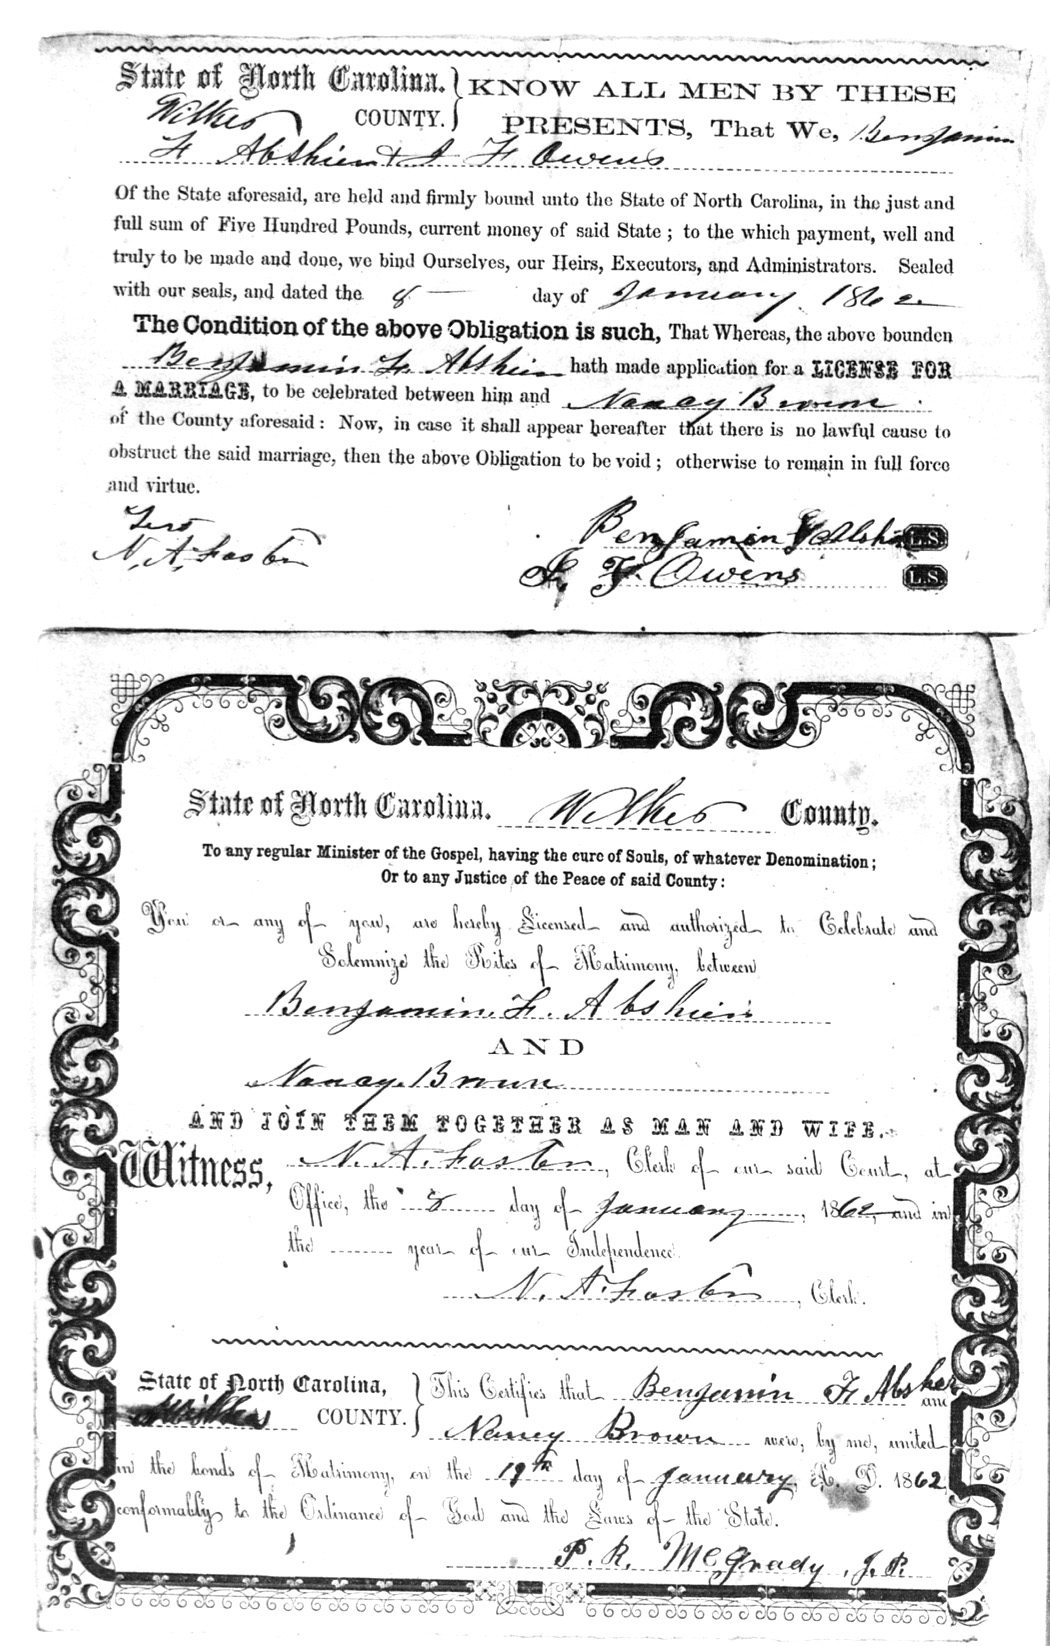 State of North Carolina. } KNOW ALL MEN BY THESE
Wilkes COUNTY. } PRESENTS, That We, Benjamin
F Abshien & J F Owens
Of the State aforesaid, are held and firmly bound unto the State of North Carolina, in the just and
full sum of Five Hundred Pounds, current money of said State ; to the which payment, well and
truly to be made and done, we bind Ourselves, our Heirs, Executors, and Administrators. Sealed
with our seals, and dated the 8 — day of January 1862
The Condition of the above Obligation is such, That Whereas, the above bounden
Benjamin F. Abshien hath made application for a LICENSE FOR
A MARRIAGE, to be celebrated between him and Nancy Brown
of the County aforesaid : Now, in case it shall appear hereafter that there is no lawful cause to
obstruct the said marriage, then the above Obligation to be void ; otherwise to remain in full force
and virtue.
Test
N. A. Foster
Benjamin F Abshi L.S.
J. F. Owens L.S.
State of North Carolina. Wilkes County.
To any regular Minister of the Gospel, having the cure of Souls, of whatever Denomination ;
Or to any Justice of the Peace of said County :
You or any of you, are hereby Licensed and authorized to Celebrate and
Solemnize the Rites of Matrimony, between
Benjamin. F. Abshien
AND
Nancy Brown
AND JOIN THEM TOGETHER AS MAN AND WIFE.
Witness, N. A. Foster, Clerk of our said Court, at
Office, the 8 day of January, 1862, and in
the year of our Independence.
N. A. Foster, Clerk.
State of North Carolina, } This Certifies that Benjamin F Absher and
Wilkes COUNTY. } Nancy Brown were, by me, united
in the bonds of Matrimony, on the 19th day of January, A. D. 1862
conformably to the Ordinance of God and the Laws of the State.
P. R. McGrady, J. P.